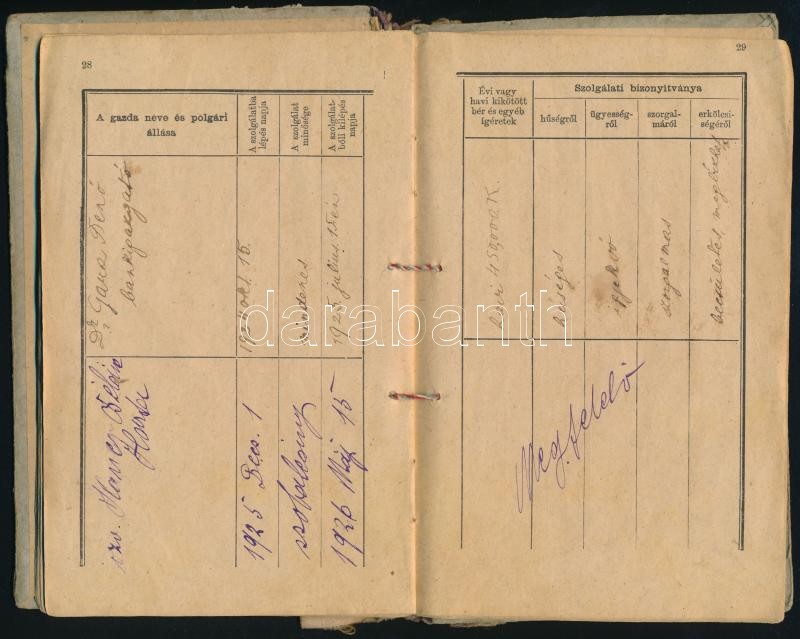 28
A gazda neve és polgári
állása
A szolgálatba
lépés napja
A szolgálat
minősége
A szolgálat-
ból kilépés
napja
Dr. Gara Dezső
okt. 15.
mindenes
1925. július 15én
özv.
1925 Decs. 1
szobaleány
1926 Máj 15
29
Évi vagy
havi kikötött
bér és egyéb
igéretek
Szolgálati bizonyitványa
hűségről
ügyesség-
ről
szorgal-
máról
erkölcsi-
ségéről
havi 450,000 K.
hűséges
szorgalmas
becsületes, megbízható
Megfelelő
darabanth